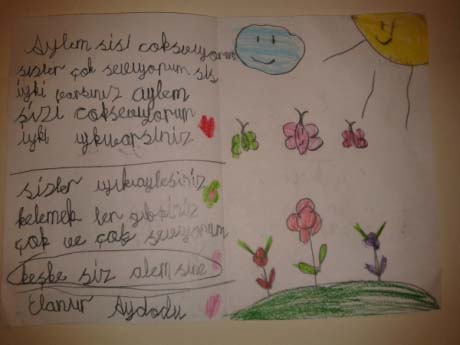 Aylem sisi cokseviyorum
sizler çok seviyorum sis
iyki varsınız aylem
sizi cokseviyorum
iyki iykivarsiniz
sizler iyikiaylesiniz
kelemek ler gibisiniz
çok ve çok seviyorum
keşke siz alem sine
Elanur Aydodu